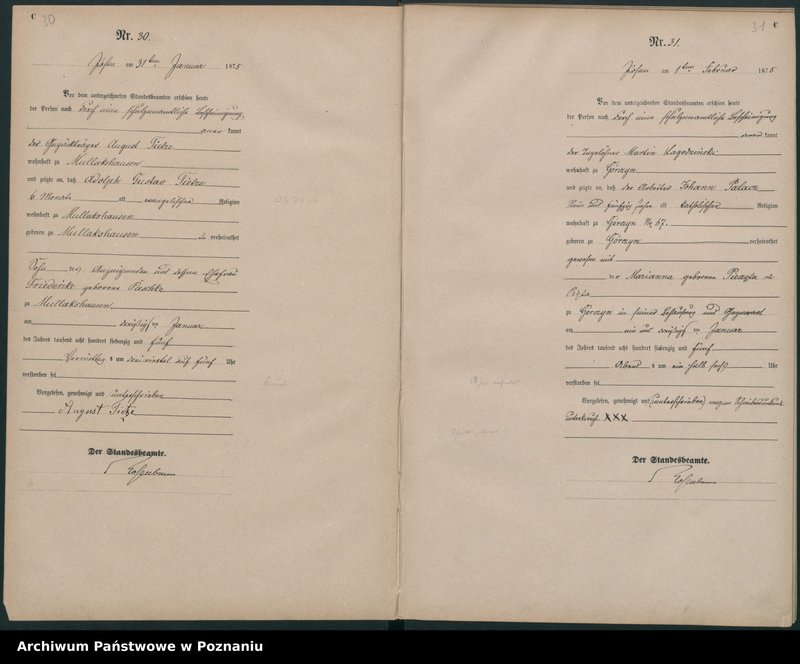 C 30
Nr. 30.
Posen am 31ten Januar 1875
Vor dem unterzeichneten Standesbeamten erschien heute
der Person nach durch eine schulzenamtliche Bescheinigung
anerkannt
der August Tietze
wohnhaft zu Mullakshausen
und zeigte an, daß Adolph Gustav Tietze
6 Monate alt evangelischer Religion
wohnhaft zu Mullakshausen
geboren zu Mullakshausen unverheirathet
Sohn des Anzeigenden und dessen Ehefrau
Friederike geborene Raschke
zu Mullakshausen
am dreißigsten Januar
des Jahres tausend acht hundert siebenzig und fünf
Vormittags um dreiviertel auf fünf Uhr
verstorben sei
Vorgelesen, genehmigt und unterschrieben
August Tietze
Der Standesbeamte.
31 C
Nr. 31.
Posen am 1ten Februar 1875
Vor dem unterzeichneten Standesbeamten erschien heute
der Person nach durch eine schulzenamtliche Bescheinigung
anerkannt
der Tagelöhner Martin Lagodzinski
wohnhaft zu Górczyn
und zeigte an, daß der Arbeiter Johann Palacz
Neun und fünfzig Jahre alt katholischer Religion
wohnhaft zu Górczyn No. 57.
geboren zu Górczyn verheirathet
gewesen mit
der Marianna geborene
zu Górczyn in seiner Behausung und Gegenwart
am ein und dreißigsten Januar
des Jahres tausend acht hundert siebenzig und fünf
Abends um ein halb sechs Uhr
verstorben sei
Vorgelesen, genehmigt und (unterschrieben) wegen Schreibensunkunde
unterkreuzt XXX
Der Standesbeamte.
Archiwum Państwowe w Poznaniu